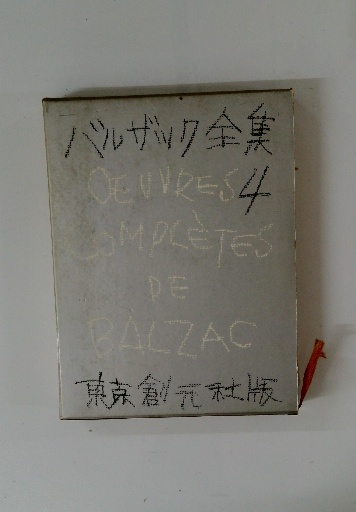 バルザック全集
OEUVRES 4
COMPLÈTES
DE
BALZAC
東京創元社版